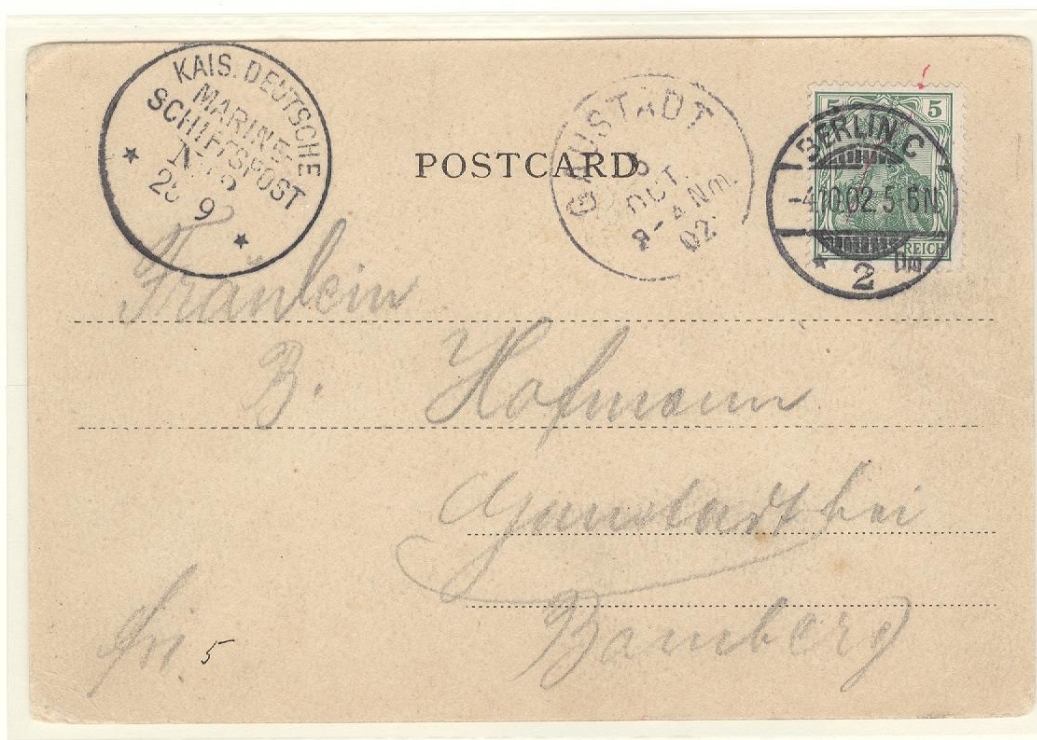 KAIS. DEUTSCHE
MARINE-
SCHIFFSPOST
25 9
POSTCARD
GAUSTADT
OCT.
3-4 Nm.
02.
5 5
BERLIN, C
-4.10.02.5-6N.
REICH
* 2
Fräulein
B. Hofmann
Gaustadt bei
Bamberg
5